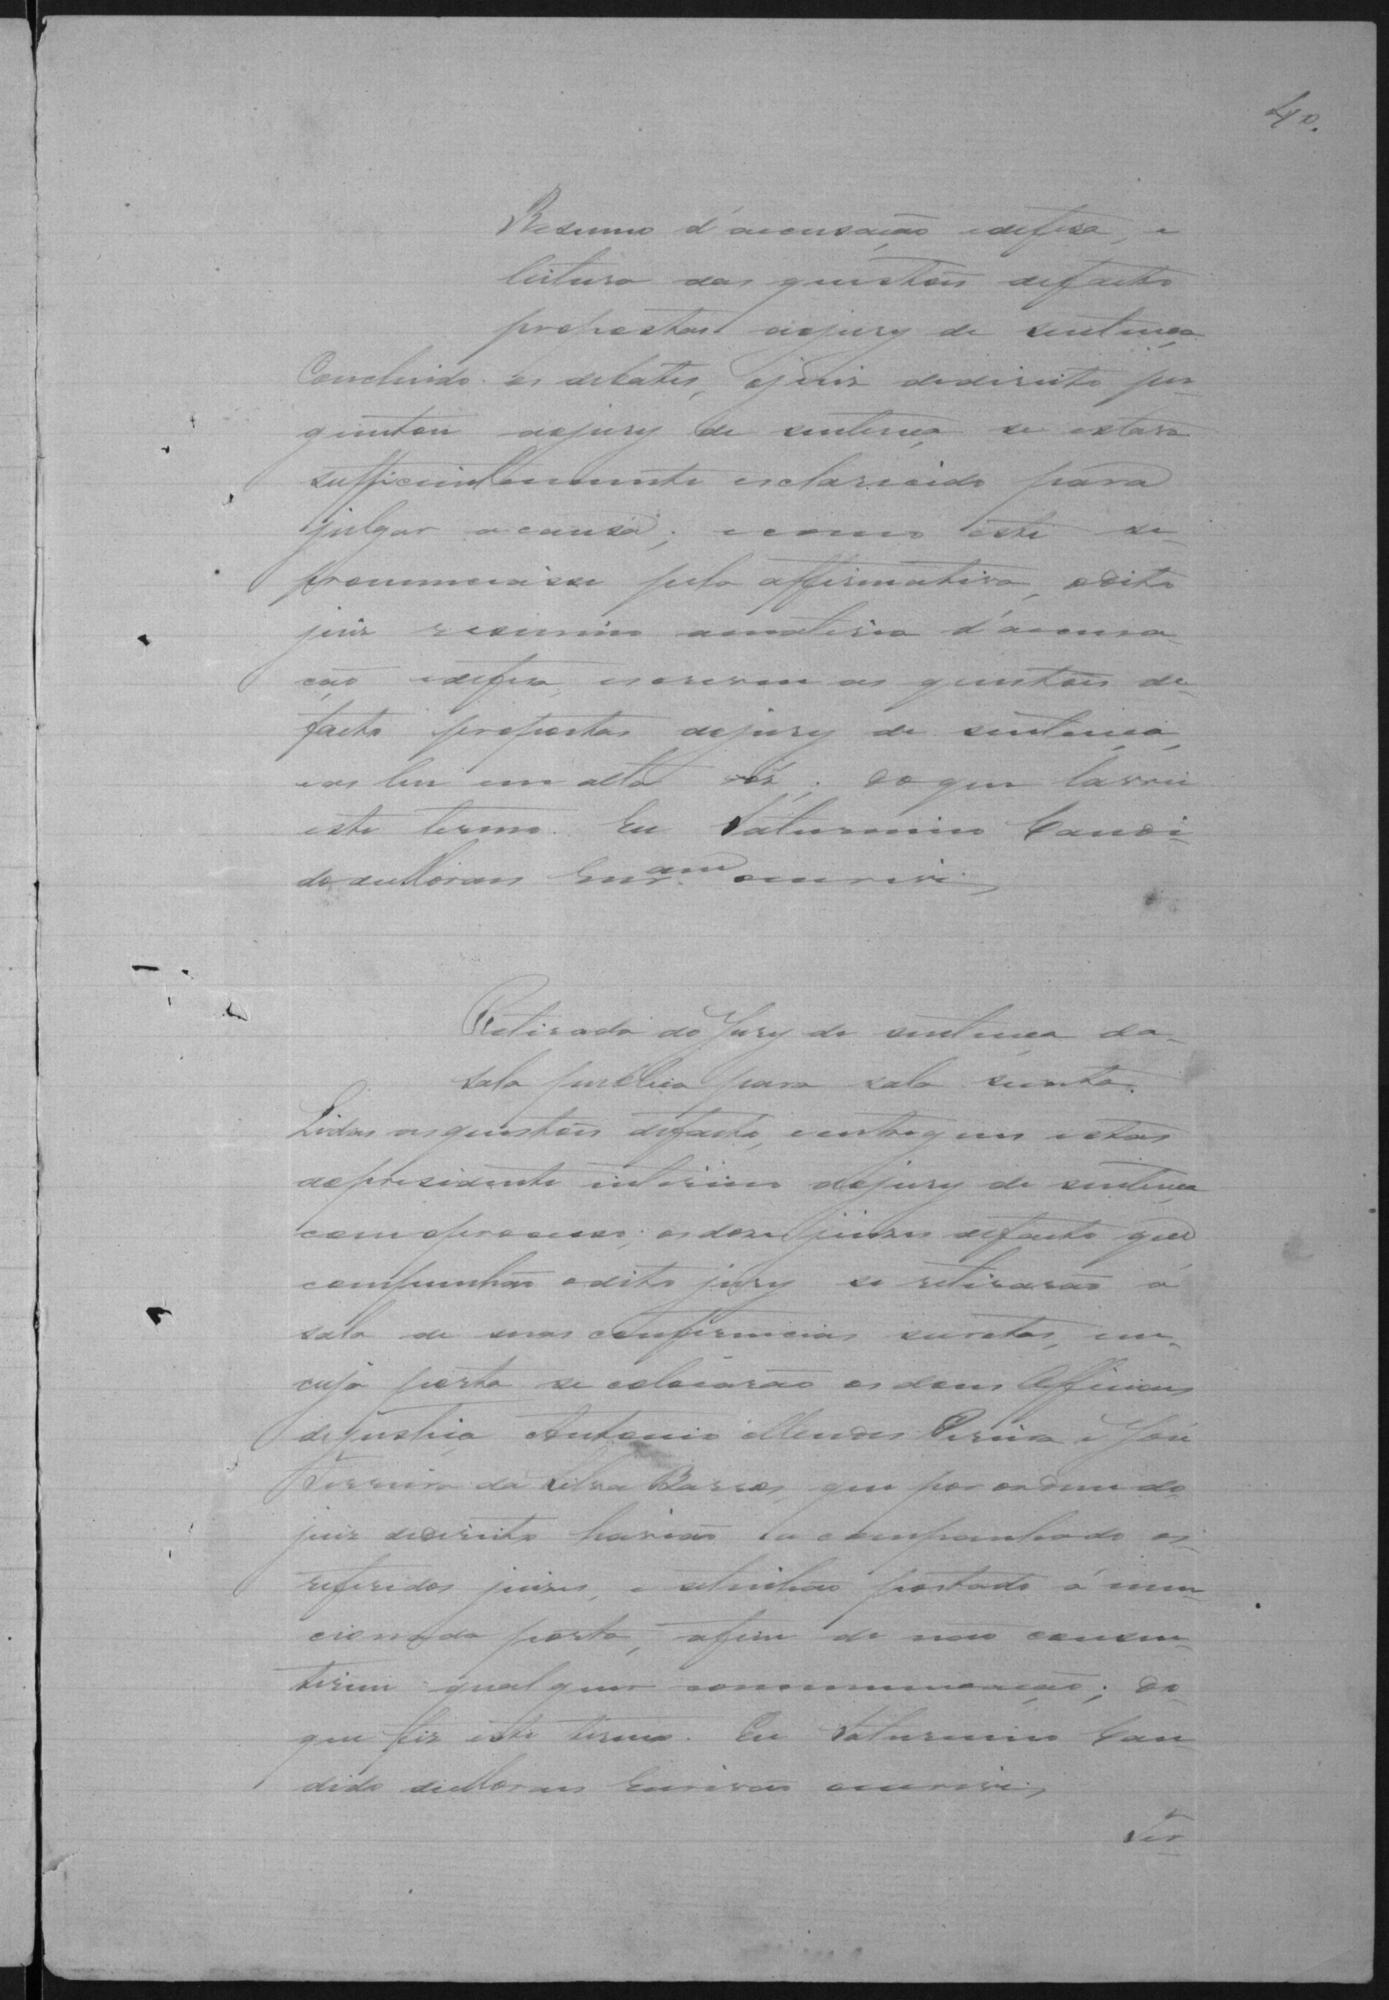 40.
Resumo d'accusação edefesa, e
leitura das questões defacto
propostas aojury de sentença.
Concluido os debates, ojuiz dedireito per-
guntou aojury de sentença se estava
sufficientemente esclarecido para
julgar acausa; ecomo este se-
pronunciasse pela affirmativa, odito
juiz resumio amateria d'accusa-
ção edefesa, escreveu as questões de-
facto propostas aojury de sentença,
eas leu em alta vóz; doque lavrei
este termo. Eu Saturnino Candi-
do deMoraes Escr.am oescrevi,
Retirada do Jury de sentença da-
sala publica para sala secreta.
Lidas asquestões defacto, eentregues estas
aopresidente interino dojury de sentença
comoprocesso; osdoze juizes defacto que
compunhão odito jury se retirarão á
sala de suas conferencias secretas, em-
cuja porta se colocarão os dous Officiaes
dejustiça Antonio Mendes Pereira e José
Ferreira da Silva Barros, que por ordem do
juiz dedireito havião acompanhado os-
referidos juizes, e setinhão postado á men-
cionada porta, afim de não consen-
tirem qualquer communicação; do-
que fiz este termo. Eu Saturnino Can-
dido deMoraes Escrivão oescrevi,
Ter-